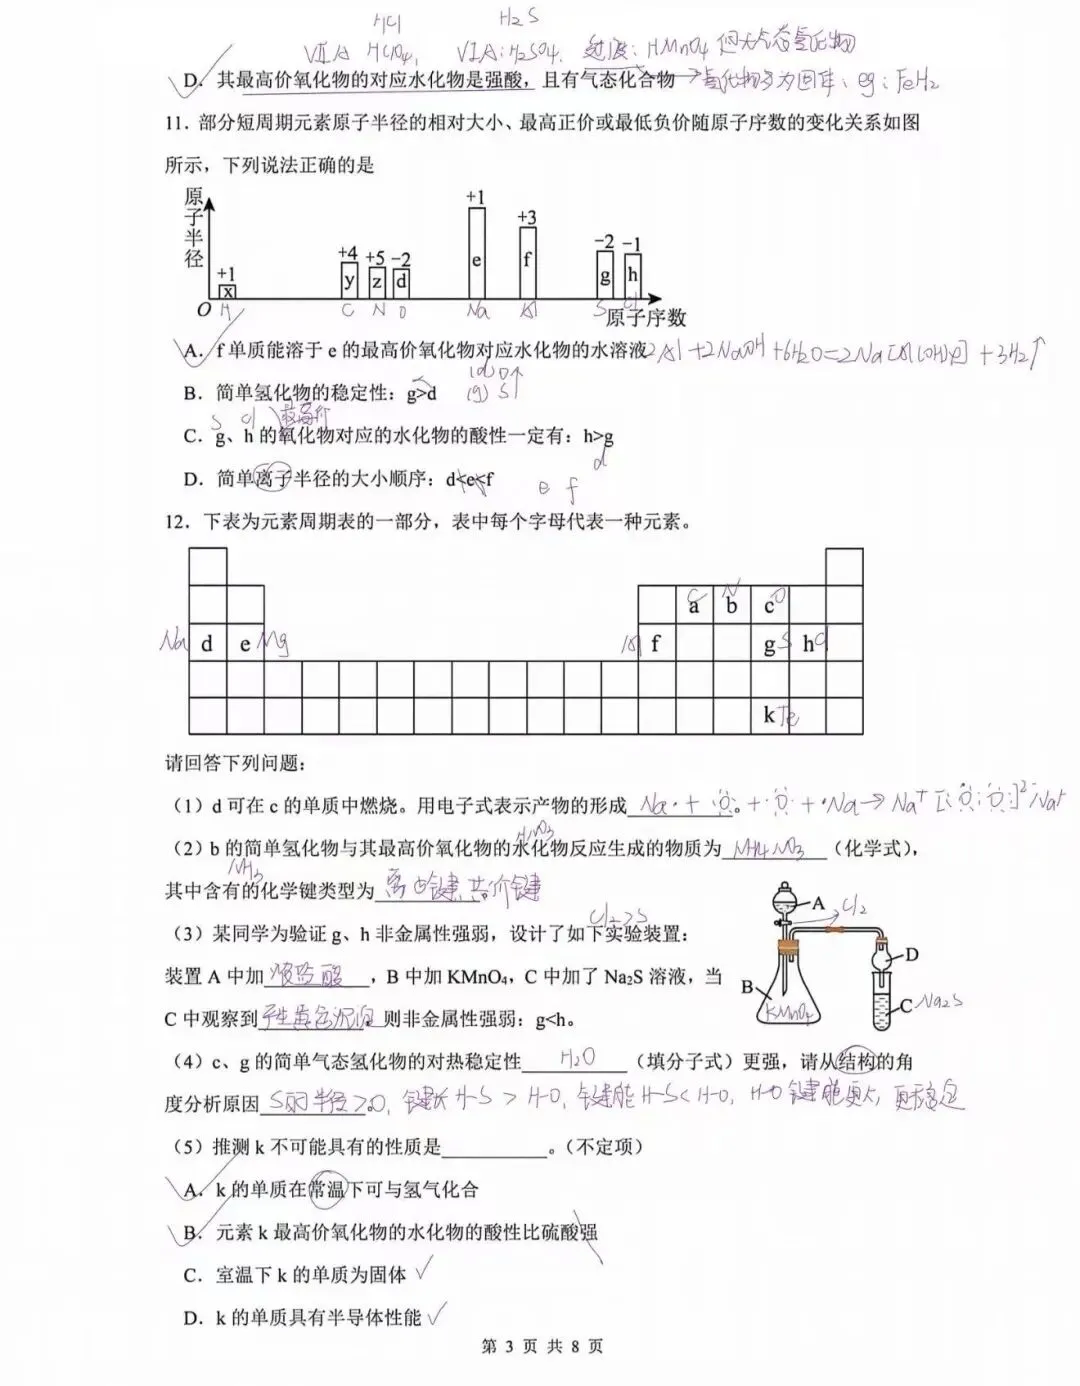 HCl H₂S
ⅦA HClO₄, ⅥA:H₂SO4. 过度:HMnO4 但无气态氢化物
D. 其最高价氧化物的对应水化物是强酸，且有气态化合物 →氢化物多为固体，eg：FeH₂
11. 部分短周期元素原子半径的相对大小、最高正价或最低负价随原子序数的变化关系如图
所示，下列说法正确的是
原子半径
+1 +4 +5 −2 +1 +3 −2 −1
x y z d e f g h
O H C N O Na Al S Cl
原子序数
A. f 单质能溶于 e 的最高价氧化物对应水化物的水溶液 2Al+2NaOH+6H₂O=2Na[Al(OH)4]+3H₂↑
(d) O↑
B. 简单氢化物的稳定性：g>d (g) S
S Cl 最高价
C. g、h 的氧化物对应的水化物的酸性一定有：h>g
D. 简单离子半径的大小顺序：d<e<f
d e f
12. 下表为元素周期表的一部分，表中每个字母代表一种元素。
C N O
a b c
Na d e Mg Al f g S h Cl
k Te
请回答下列问题：
（1）d 可在 c 的单质中燃烧。用电子式表示产物的形成 Na· + ·O· + ·O· + ·Na → Na⁺[:O:O:]²⁻Na⁺
HNO₃
（2）b 的简单氢化物与其最高价氧化物的水化物反应生成的物质为 NH4NO₃ （化学式），
NH₃
其中含有的化学键类型为 离子键、共价键
Cl₂>S
（3）某同学为验证 g、h 非金属性强弱，设计了如下实验装置：
装置 A 中加 浓盐酸 ，B 中加 KMnO₄，C 中加了 Na₂S 溶液，当
C 中观察到 产生黄色沉淀 则非金属性强弱：g<h。
A Cl₂
D
B KMnO₄
C Na₂S
（4）c、g 的简单气态氢化物的对热稳定性 H₂O （填分子式）更强，请从结构的角
度分析原因 S的半径>O，键长 H-S > H-O，键能 H-S < H-O，H-O 键能更大，更稳定
（5）推测 k 不可能具有的性质是 。（不定项）
A. k 的单质在常温下可与氢气化合
B. 元素 k 最高价氧化物的水化物的酸性比硫酸强
C. 室温下 k 的单质为固体 ✓
D. k 的单质具有半导体性能 ✓
第 3 页 共 8 页